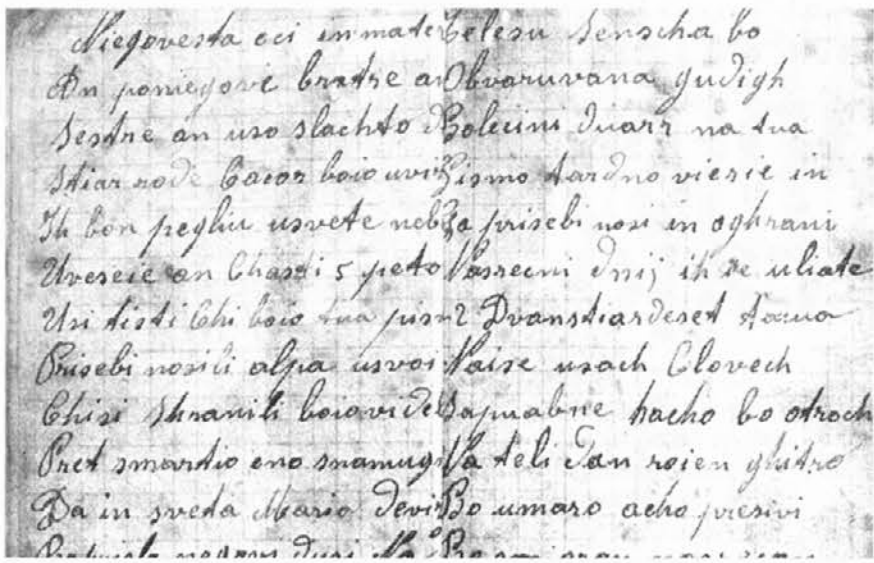 Niegovesta oci in mater
An poniegove bratre an
Sestre an uso slachto
Stiar rode Cacor boio uvi
Ih bon pegliu usvete neb
Uveseie an Chasti 5 peto
Usi tisti Chi boio tua pism
Prisebi nosili alpa usvoi
Chisi Shranili boio vide
Pret smartio eno snamug
Da in sveta Mario Devi
negovi dusi
Telesu Senscha bo
Obvaruvana gudigh
Bolecini duarz na tua
Pismo tardno vierie in
Ga prisebi nosi in oghrani
Vasrecni dnij ih se uliate
2 Dvanstiardeset taua
Naise usach Clovech
Sapuabne hacho bo otroch
Na teli dan roien ghitro
Bo umaro acho presivi